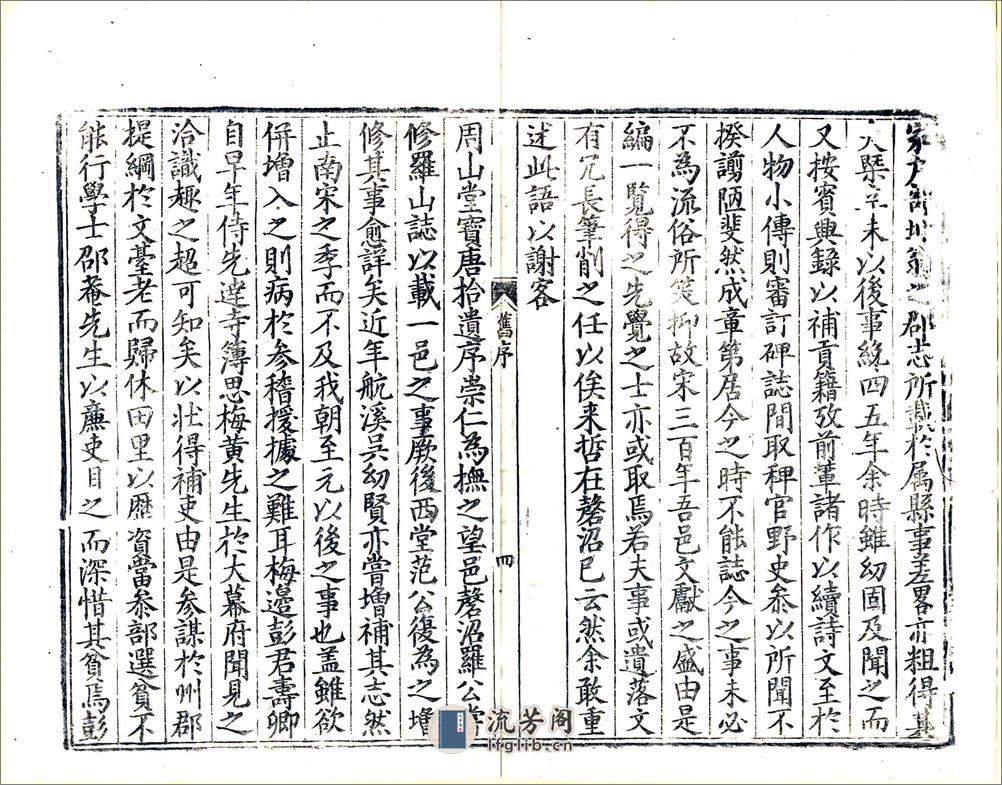 之郡志所載於属縣事差畧亦粗得其
大槩辛未以後事纔四五年余時雖幼固及聞之而
又按賓興錄以補貢籍攷前輩諸作以續詩文至於
人物小傳則審訂碑誌間取稗官野史叅以所聞不
揆謭陋斐然成章第居今之時不能誌今之事未必
不為流俗所笑抑故宋三百年吾邑文獻之盛由是
編一覧得之先覺之士亦或取焉若夫事或遺落文
有冗長筆削之任以俟来哲在磬沼已云然余敢重
述此語以謝客
舊序
四
周山堂寶唐拾遺序崇仁為撫之望邑磬沼羅公嘗
修羅山誌以載一邑之事厥後西堂范公復為之增
修其事愈詳矣近年航溪吳幼賢亦嘗增補其志然
止南宋之季而不及我朝至元以後之事也盖雖欲
併增入之則病於参稽援據之難耳梅邊彭君壽卿
自早年侍先達寺簿思梅黄先生於大幕府聞見之
洽識趣之超可知矣以壮得補吏由是参謀於州郡
提綱於文臺老而歸休田里以歴資當叅部選貧不
能行學士邵菴先生以亷吏目之而深惜其貧焉彭
流芳阁
lfglib.cn